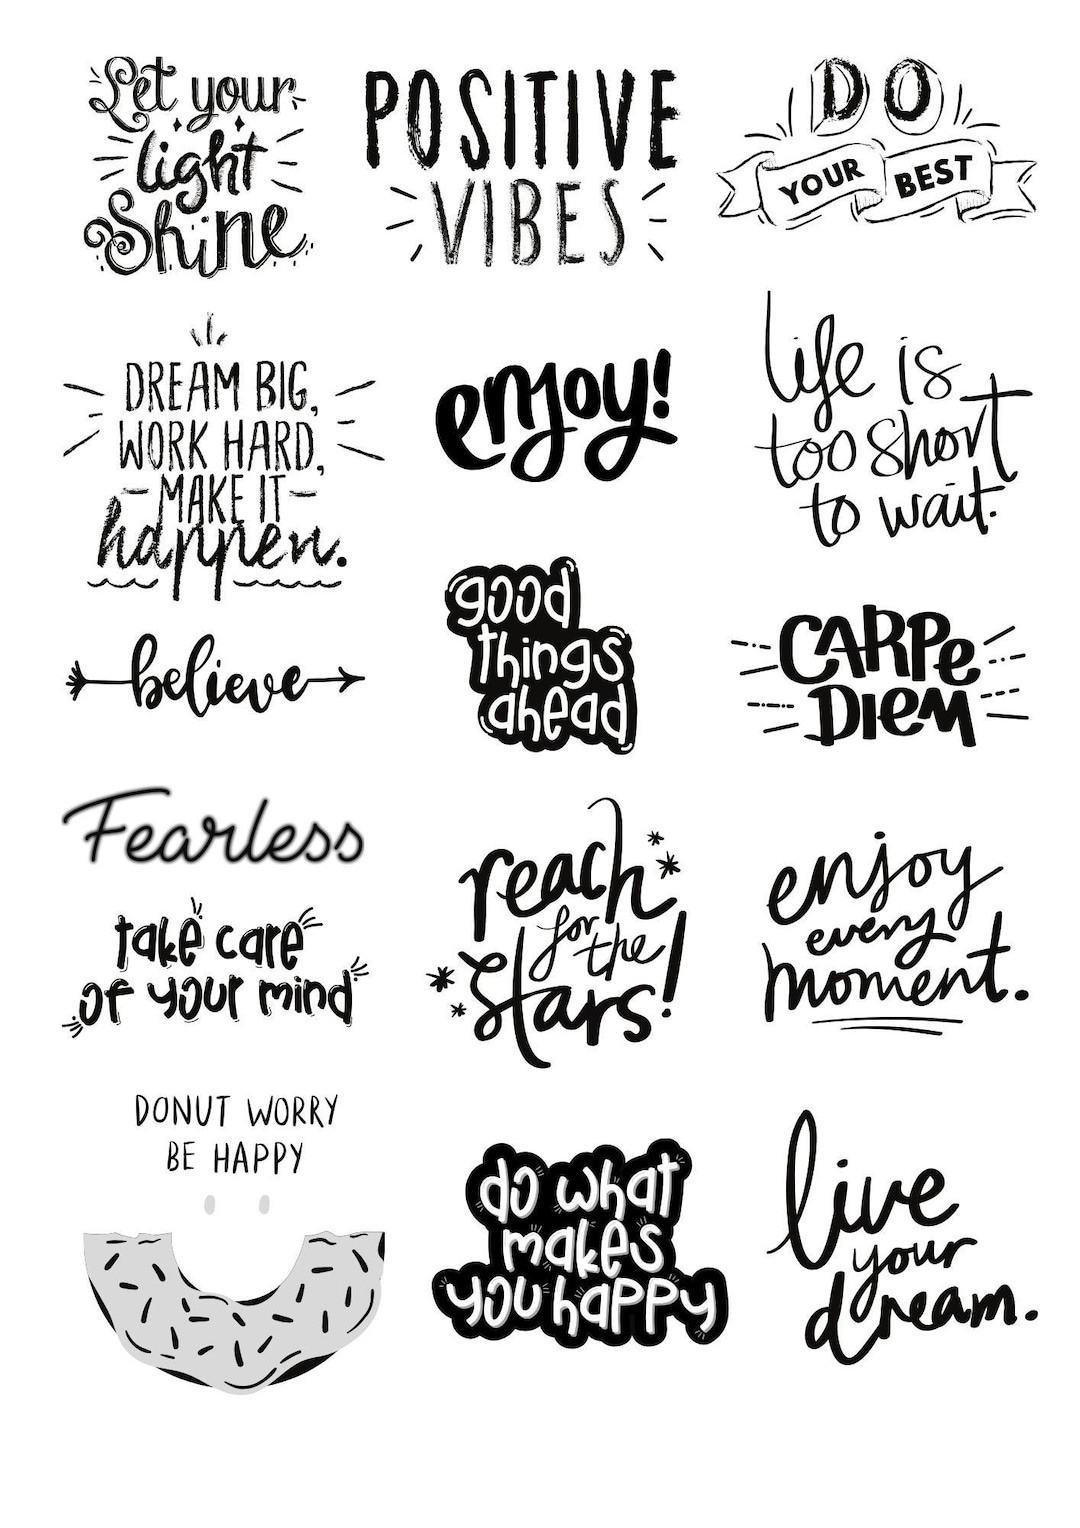 Let your
light
Shine
POSITIVE
VIBES
DO
YOUR BEST
DREAM BIG,
WORK HARD,
MAKE IT
happen.
enjoy!
life is
too short
to wait.
good
things
ahead
believe
CARPe
DIeM
Fearless
take care
of your mind
reach
for the
Stars!
enjoy
every
moment.
DONUT WORRY
BE HAPPY
do what
makes
you happy
live
your
dream.